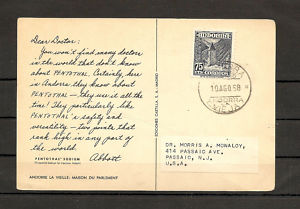 Dear Doctor:
You won't find many doctors
in the world that don't know about
PENTOTHAL. Certainly, here
in Andorra they know about
PENTOTHAL — they use it all the
time! They particularly like
PENTOTHAL'S safety and
versatility — two points that
rank high in any part of
the world.
Abbott
PENTOTHAL® SODIUM
ANDORRE LA VIEILLE: MAISON DU PARLEMENT
ANDORRA
75
CTS CORREOS
ANDORRA
DR. MORRIS A. MONALOY,
414 PASSAIC AVE.
PASSAIC, N.J.
U.S.A.